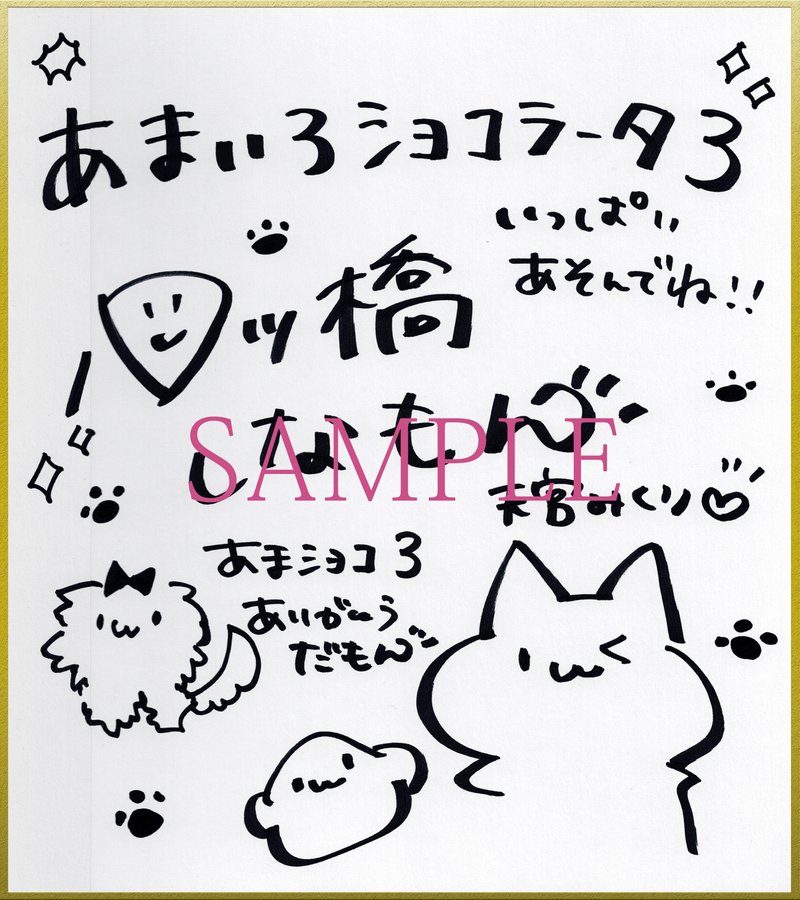 あまいろショコラータ3
いっぱい
あそんでね!!
四ッ橋
しなもん
SAMPLE
天宮みくり
あまショコ3
ありがとう
だもん